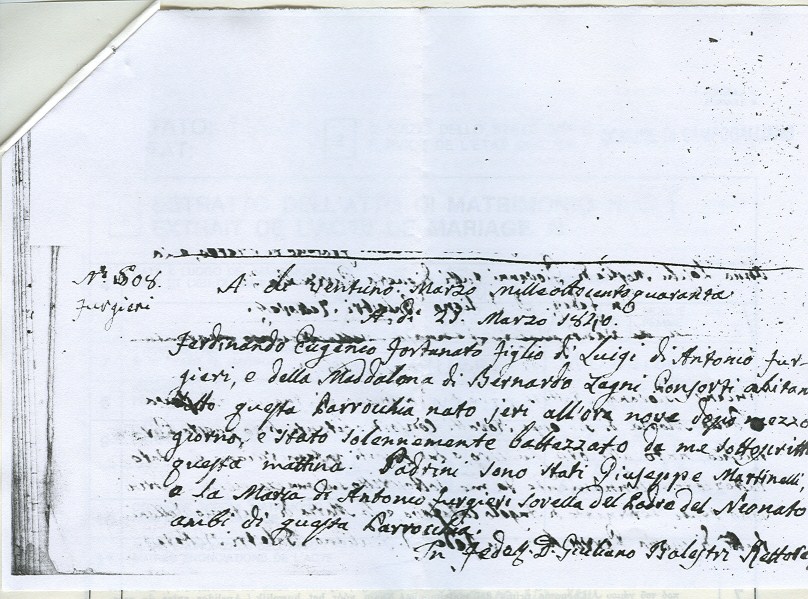 Nº 808.
Furgieri
A dì Ventuno Marzo milleottocentoquaranta
A dì 21. Marzo 1840.
Ferdinando Eugenio Fortunato figlio di Luigi di Antonio Fur-
gieri, e della Maddalena di Bernardo Zagni Consorti abitan
sotto questa Parrocchia nato jeri all'ora nove dopo mezzo
giorno, è stato solennemente battezzato da me sottoscritt
questa mattina. Padrini sono stati Giuseppe Martinelli,
e la Maria di Antonio Furgieri sorella del Padre del Neonato
ambi di questa Parrocchia.
In fede D. Giuliano Balestri Rettore